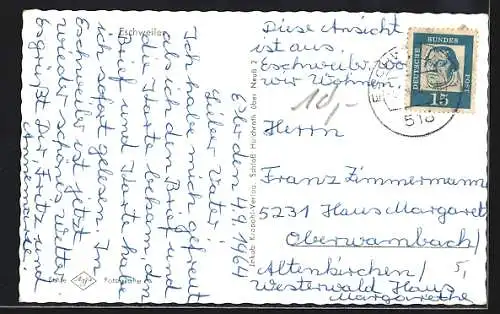 Eschweiler
Eller den 4.9.1964
Lieber Vater!
Ich habe mich gefreut
als ich den Brief und
die Karte bekam, den
Brief und Karte habe
ich sofort gelesen. In
Eschweiler ist jetzt
wieder schönes Wetter
begrüßt Der Fritz und
Annemarie.
Diese Ansicht
ist aus
Eschweiler wo
wir Wohnen.
10,-
Herrn
Franz Zimmermann
5231 Haus Margaret
Oberwambach/
Altenkirchen/
Westerwald Haus
Margarethe
5,
DEUTSCHE
BUNDES
POST
15
518